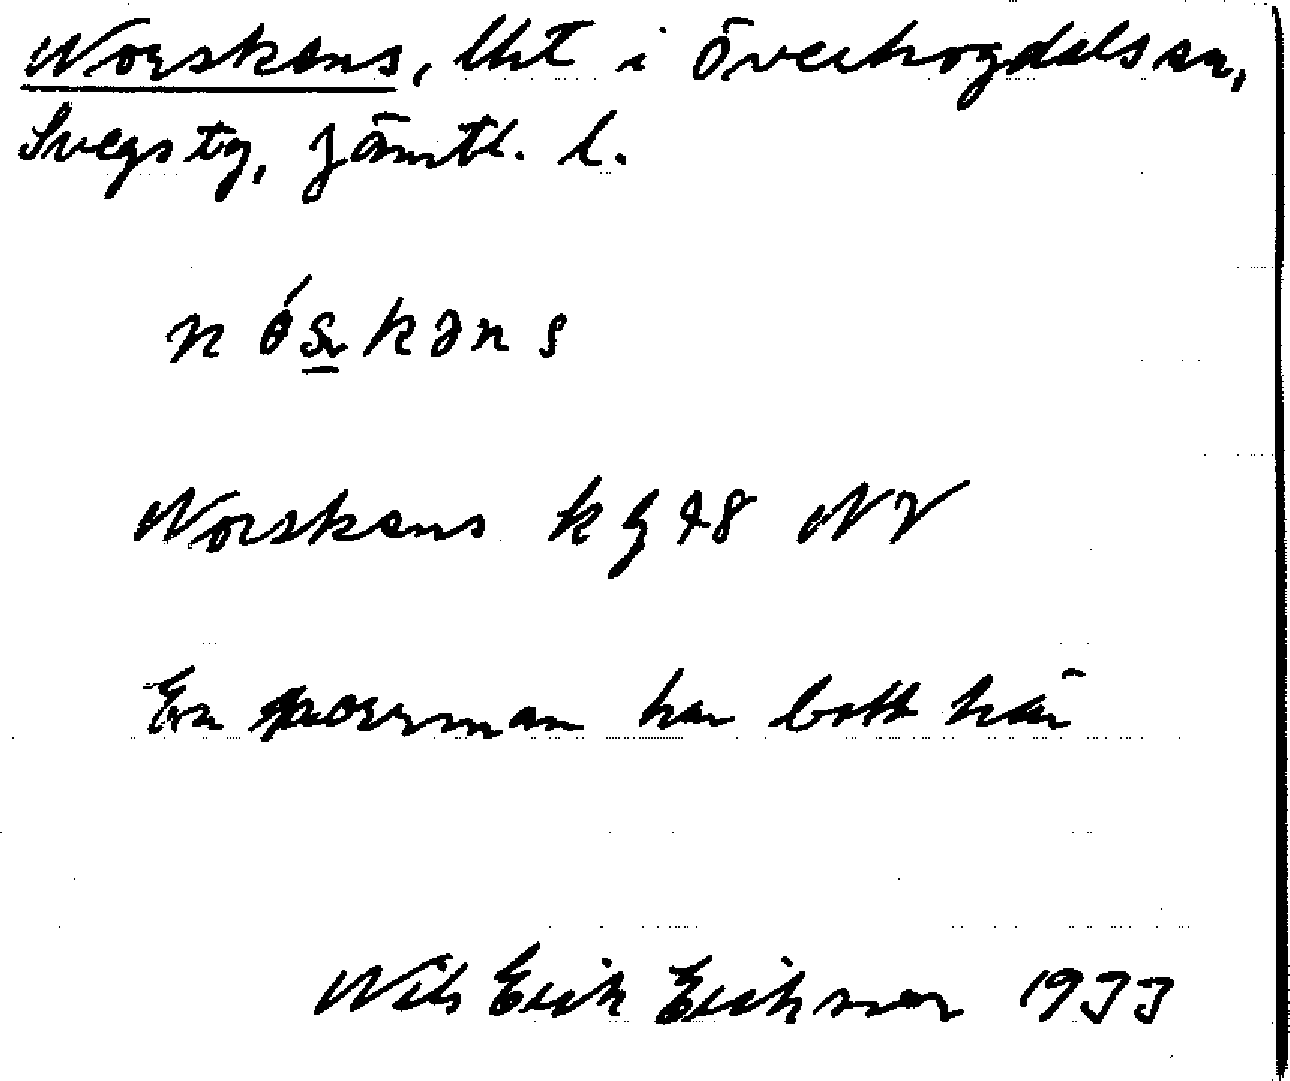 Norskens, lht i Överhogdals sn,
Svegs tg, Jämtl. l.
nǿskəns
Norskens kg 28 NV
En norrman har bott här
Nils Erik Eriksson 1933